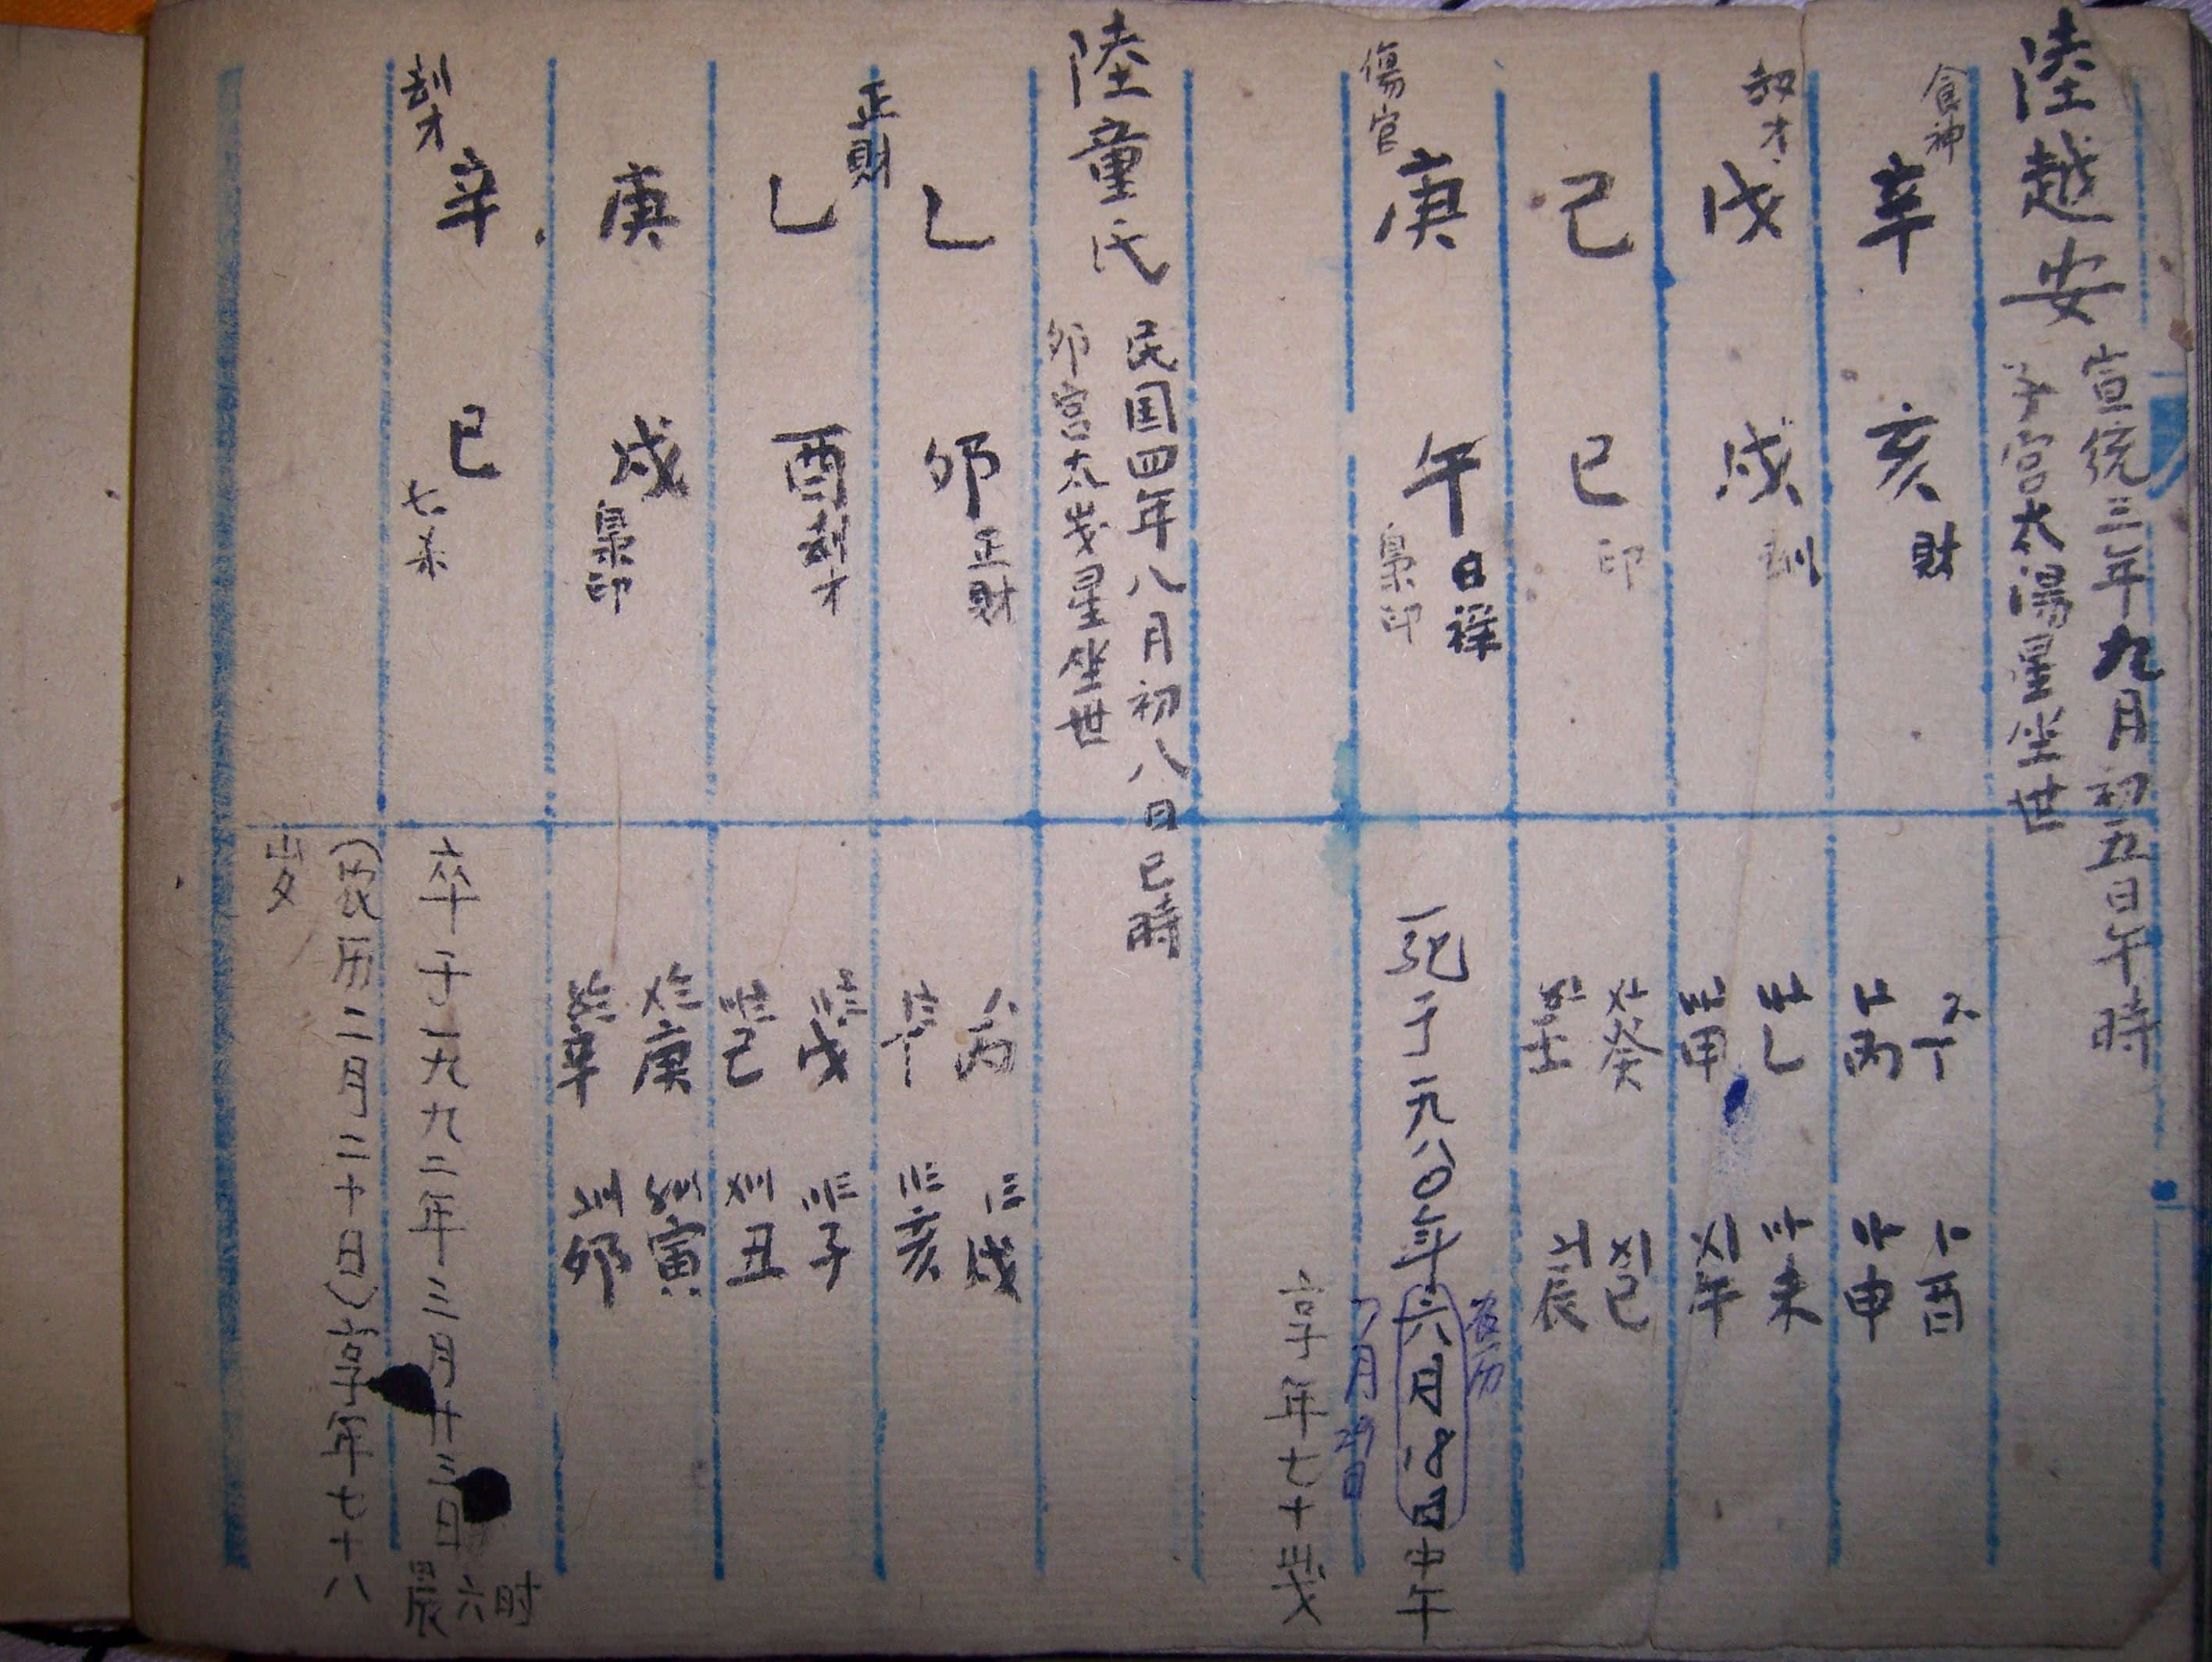 陸越安
宣統三年九月初五日午時
子宮太陽星坐世
食神
辛 亥 財
戊 戌 刦
己 巳 印
傷官
庚 午 日祿
梟印
丁 酉
丙 申
乙 未
甲 午
癸 巳
壬 辰
死于一九八〇年六月18日中午
农历
7月29日
享年七十歲
陸童氏
民国四年八月初八日巳時
卯宮太歲星坐世
正財
乙 卯 正財
乙 酉 刦才
庚 戌 梟印
刦才
辛 巳 七杀
丙 戌
丁 亥
戊 子
己 丑
庚 寅
辛 卯
卒于一九九二年三月廿三日晨六时
(农历二月二十日)享年七十八
岁